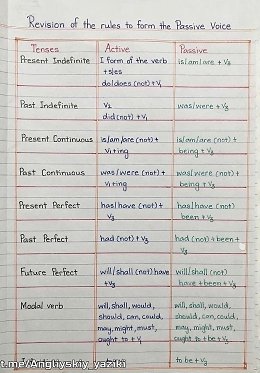 Revision of the rules to form the Passive Voice
Tenses Active Passive
Present Indefinite I form of the verb is/am/are + V3
+ s/es
do/does (not) + V1
Past Indefinite V2 was/were + V3
did (not) + V1
Present Continuous is/am/are (not) + is/am/are (not) +
V1 + ing being + V3
Past Continuous was/were (not) + was/were (not) +
V1 + ing being + V3
Present Perfect has/have (not) + has/have (not)
V3 been + V3
Past Perfect had (not) + V3 had (not) + been +
V3
Future Perfect will/shall (not) have will/shall (not)
+ V3 have + been + V3
Modal verb will, shall, would, will, shall, would,
should, can, could, should, can, could,
may, might, must, may, might, must,
ought to + V1 ought to + be + V3
to be + V3
t.me/Angliyskiy_yaziki